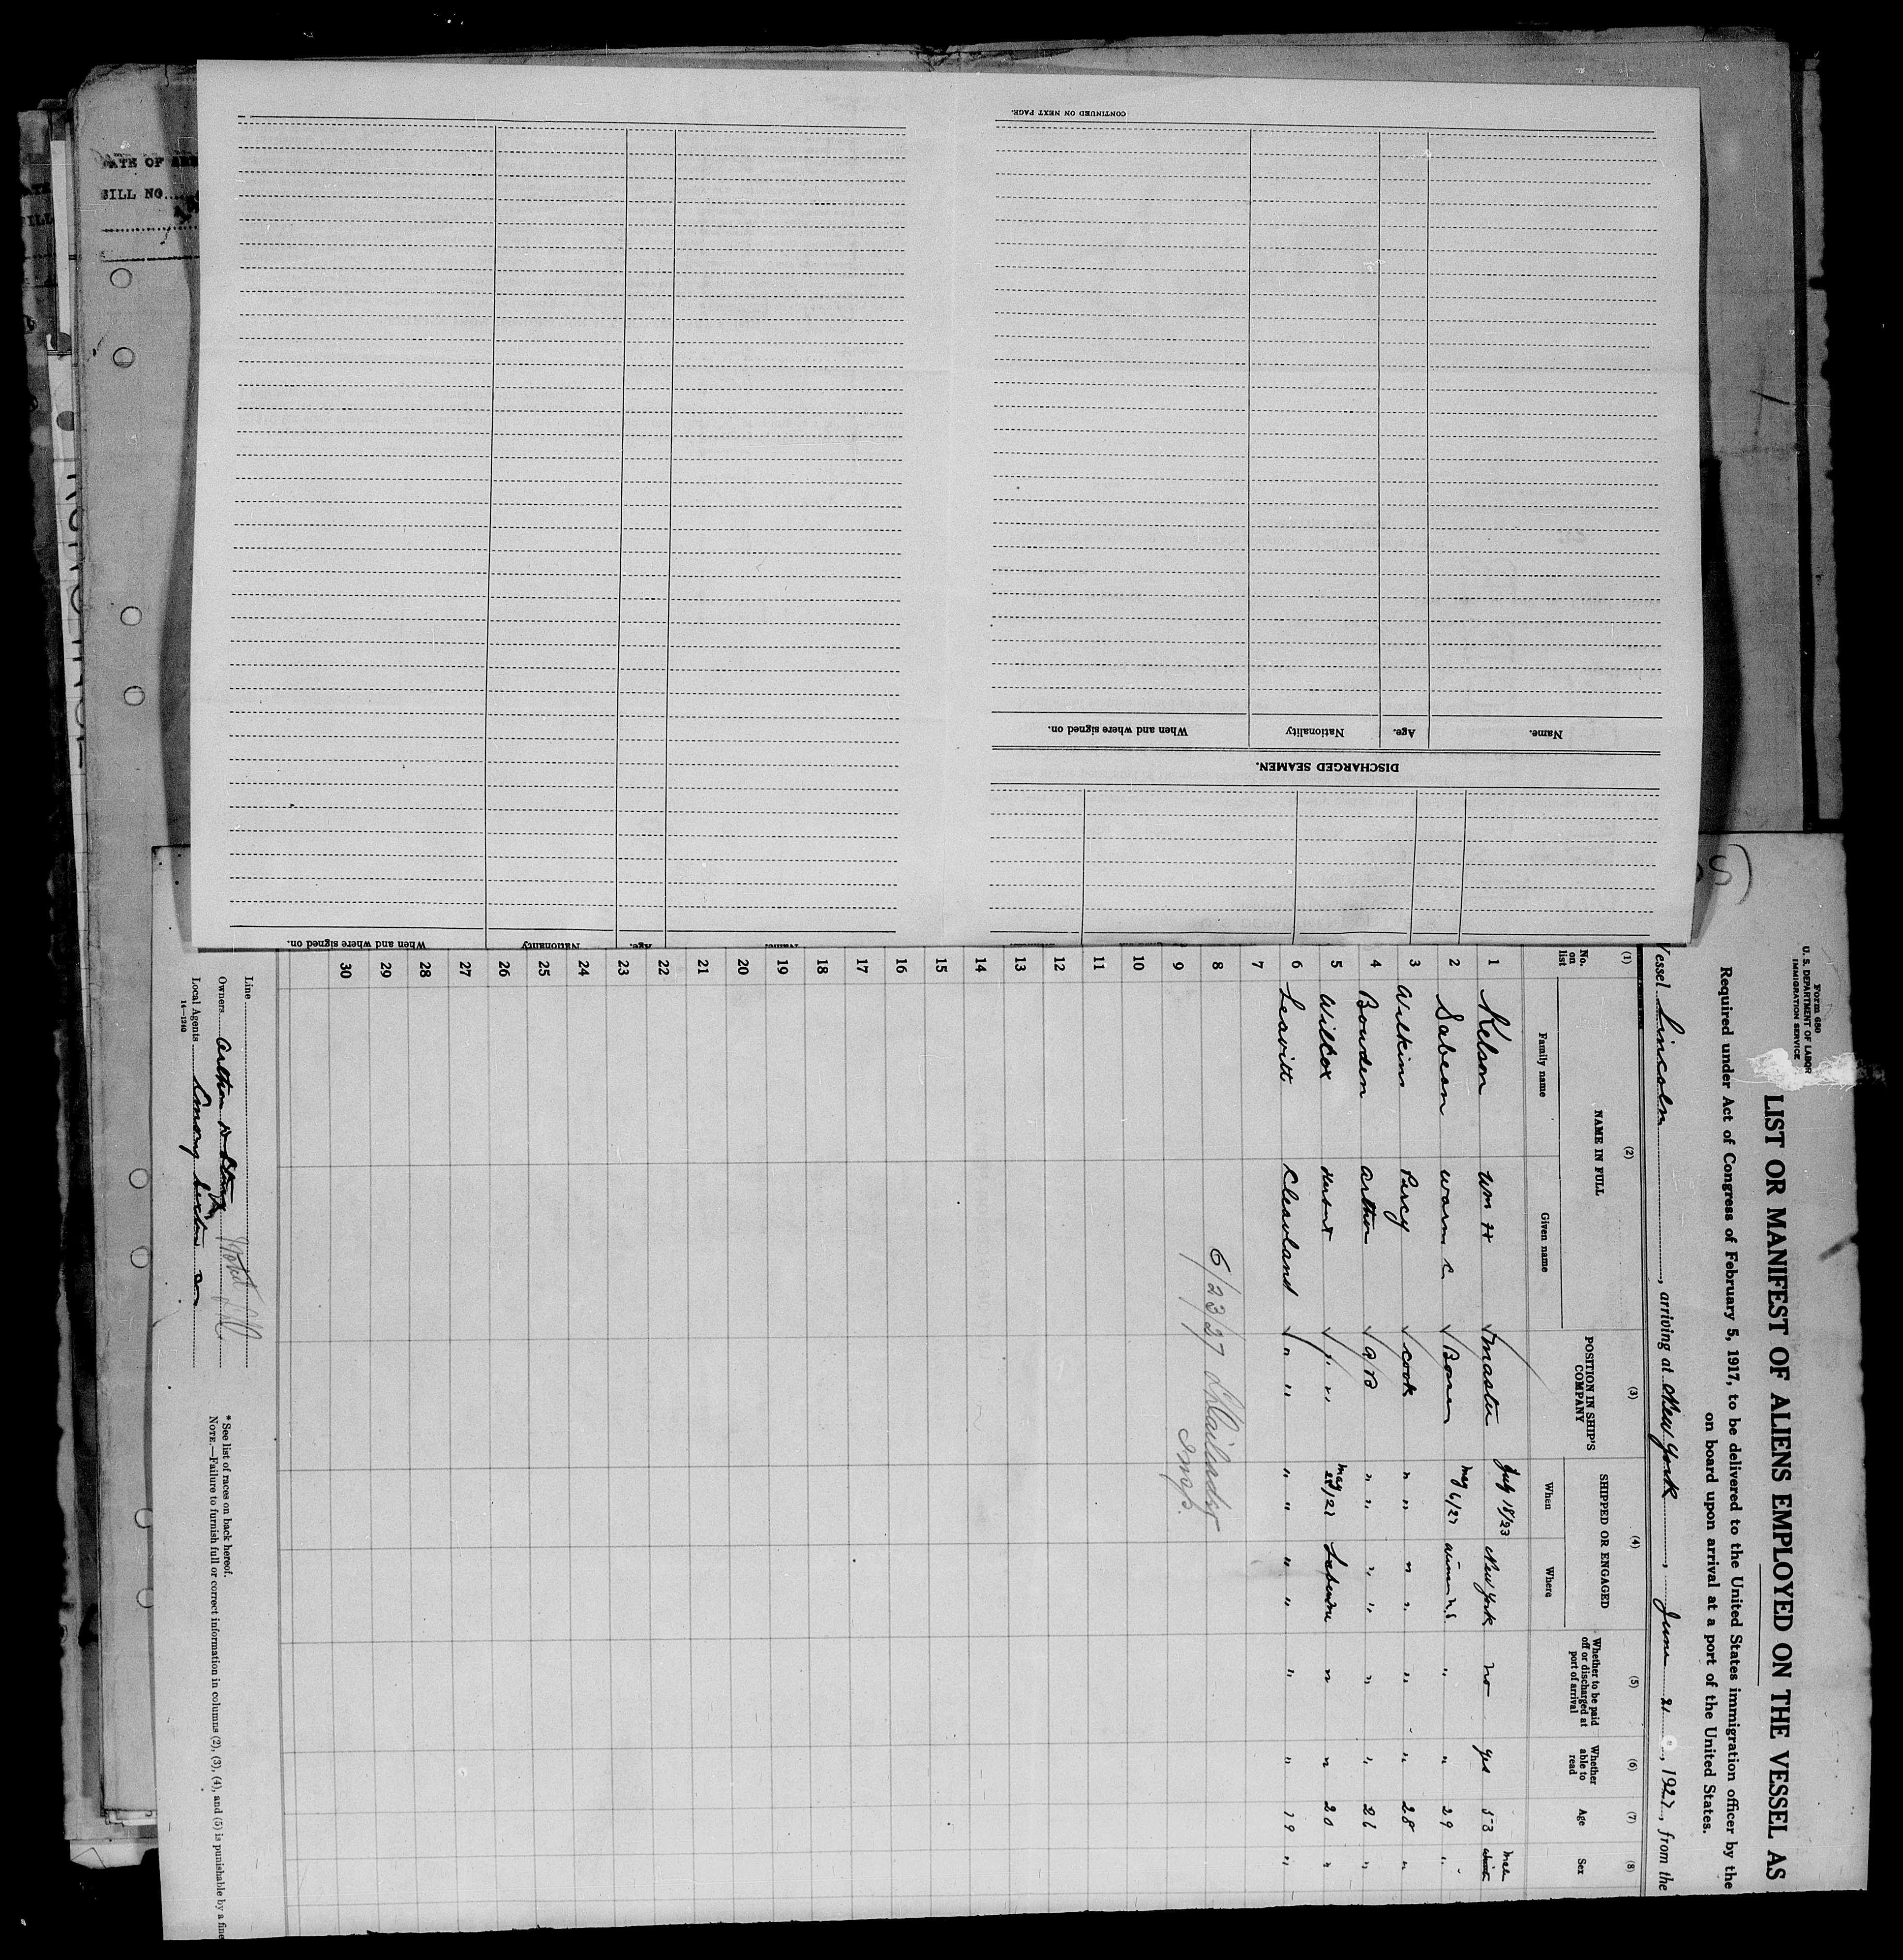 DATE OF
BILL NO.
CONTINUED ON NEXT PAGE.
Name. Age. Nationality When and where signed on.
DISCHARGED SEAMEN.
Name. Age. Nationality When and where signed on.
Form 680
U. S. DEPARTMENT OF LABOR
IMMIGRATION SERVICE
LIST OR MANIFEST OF ALIENS EMPLOYED ON THE VESSEL AS
Required under Act of Congress of February 5, 1917, to be delivered to the United States immigration officer by the
on board upon arrival at a port of the United States.
Vessel Lincoln, arriving at New York, June 21, 1927, from the
(1) (2) (3) (4) (5) (6) (7) (8)
No. on list NAME IN FULL POSITION IN SHIP'S COMPANY SHIPPED OR ENGAGED Whether to be paid off or discharged at port of arrival Whether able to read Age Sex
Family name Given name When Where
1 Kelson Wm H √ master July 18/23 New York no yes 53 male
2 Sabean √ May 6/27 " " 29 "
3 Wilkins Percy √ cook " " " " " " 28 "
4 Bowden Arthur √ A B " " " " " " 26 "
5 Wilcox Herbert √ " " May " " 20 "
6 Leavitt Cleavland √ " " " " " " " " 19 "
7
8 6/23/27
9 Insp.
10
11
12
13
14
15
16
17
18
19
20
21
22
23
24
25
26
27
28
29
30
Line
Owners Arthur
Local Agents
14—1240
* See list of races on back hereof.
NOTE.—Failure to furnish full or correct information in columns (2), (3), (4), and (5) is punishable by a fine